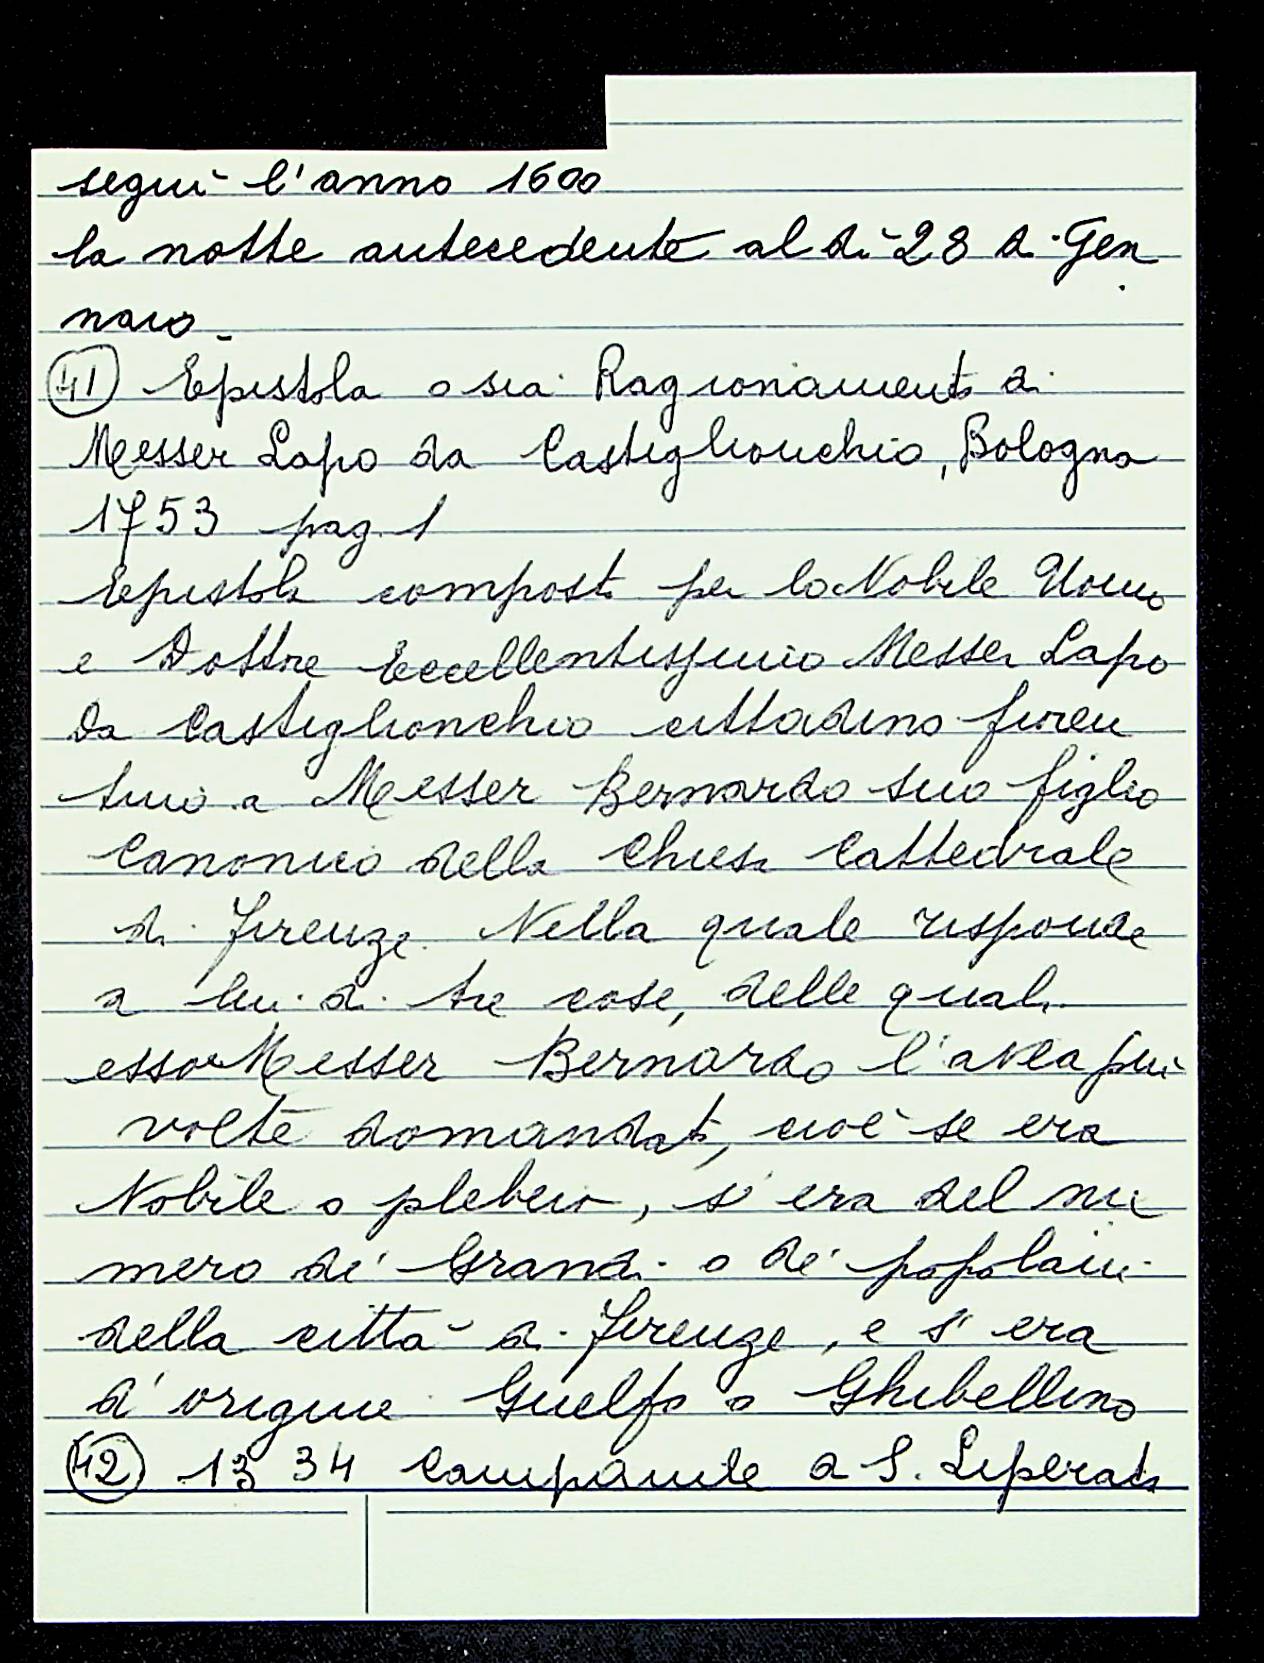 seguì l'anno 1600
la notte antecedente al dì 28 di Gen
naio
41 Epistola o sia Ragionamento di
Messer Lapo da Castiglionchio, Bologna
1753 pag. 1
Epistola composta per lo Nobile Uomo
e Dottore Eccellentissimo Messer Lapo
da Castiglionchio cittadino fioren
tino a Messer Bernardo suo figlio
Canonico della Chiesa Cattedrale
di Firenze. Nella quale risponde
a lui di tre cose, delle quali
esso Messer Bernardo l'avea più
volte domandato, cioè se era
Nobile o plebeio, s'era del nu
mero de' Grandi o de' popolani
della città di Firenze, e s'era
d'origine Guelfo o Ghibellino
42 1334 Campanile a S. Liperata